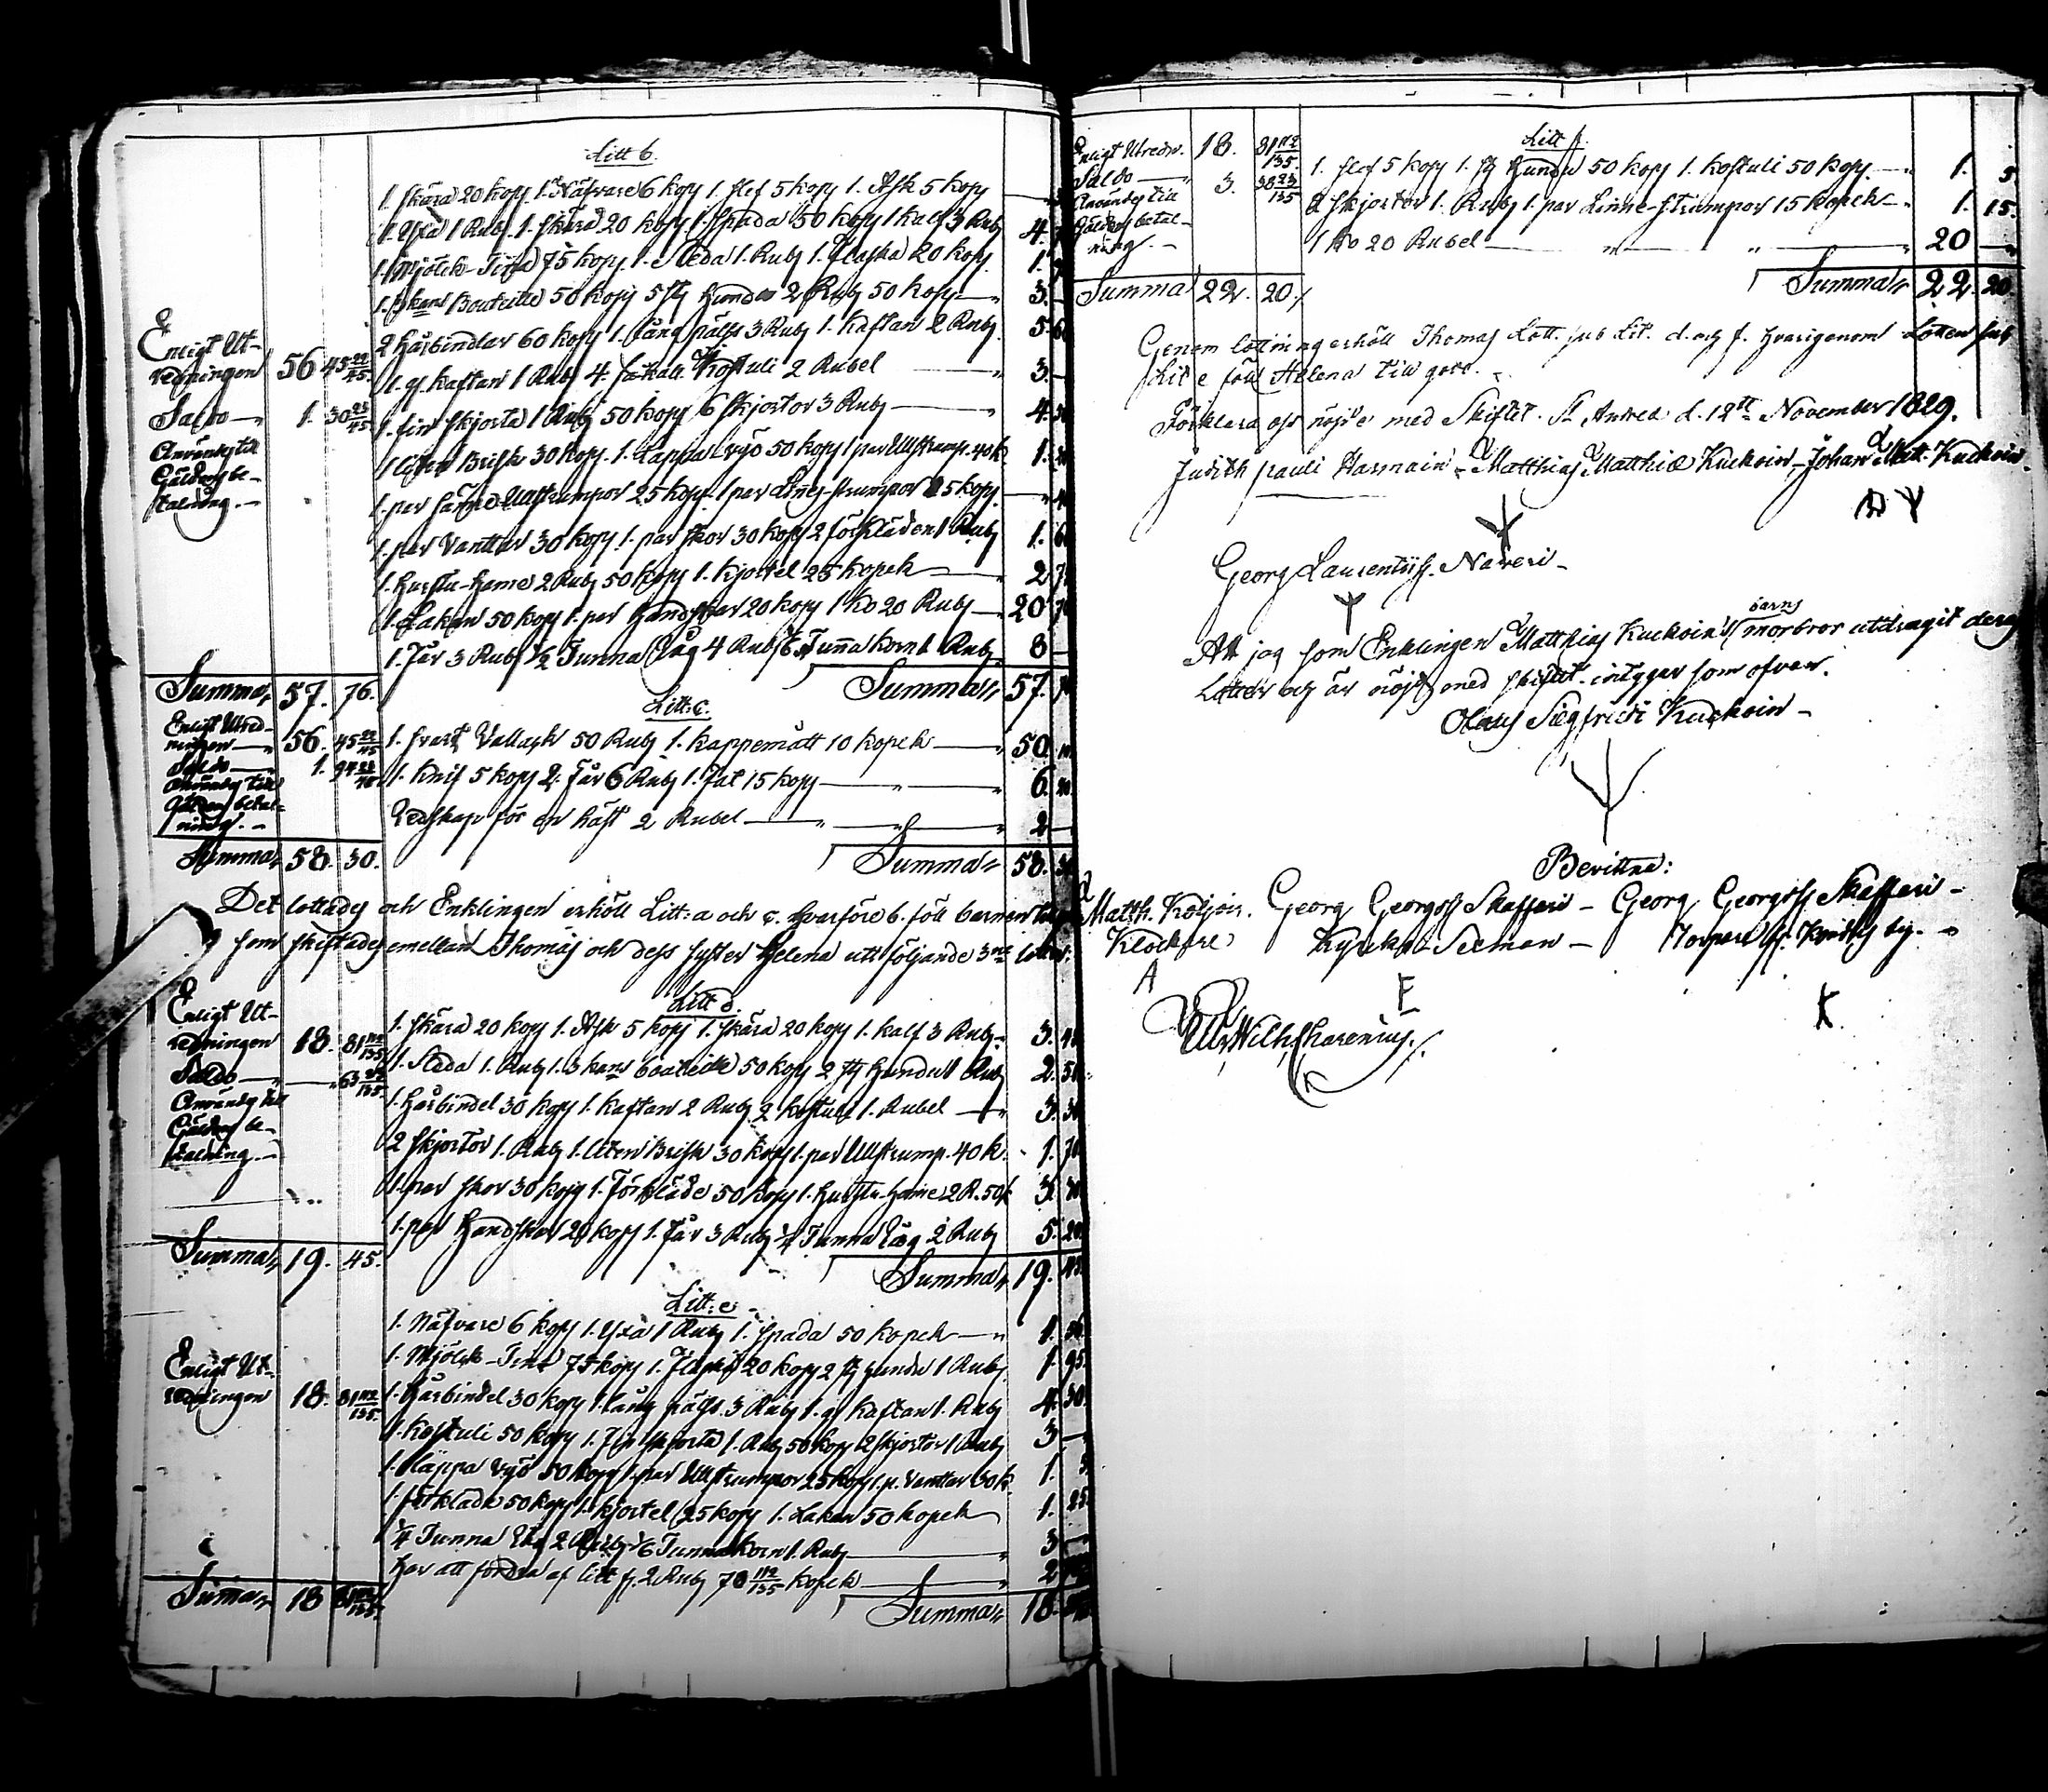 Litt b.
1. Skära 20 kop 1. Näfvare 6 kop 1. slef 5 kop 1. Ask 5 kop
1. Yxa 1 Rub. 1. Skära 20 kop 1 Spada 50 kop 1 kalf 3 Rub 4.
1. Mjölck-Tina 75 kop. 1. Släda 1. Rub 1. Flaska 20 kop 1.
1. 3 kans Bouteille 50 kop 5 st Hundar 2 Rub 50 kop 3. —
2 Hårbindlar 60 kop 1. lång päls 3 Rub 1. Kaftan 2 Rub. 5. 60
Enligt Ut-
redningen 56 45 22/45.
1. gl Kaftan 1 Rub 4. Kostuli 2 Rubel 3. —
Saldo 1. 30 23/45
1. fin Skjorta 1 Rub 50 kop 6 Skjortor 3 Rub 4. 50
Användes till
Gäldens be-
talning. —
1 liten Brisk 30 kop. 1. Lappa vyö 50 kop 1 par Ullstrump. 40 k. 1. 20
1. par Ullstrumpor 25 kop. 1 par Linne-strumpor 15 kop
1. par Vanttar 30 kop 1. par skor 30 kop 2 förkläden 1 Rub 1. 60
1. Hurstu-Hame 2 Rub 50 kop 1. Kjortel 25 kopek 2 75
1. Lakan 50 kop 1. par Handskar 20 kop 1 Ko 20 Rub 20 70
1. Får 3 Rub 1/2 Tunna Råg 4 Rub 1/6 Tunna korn 1 Rub 8 —
Summa 57. 76. Summa 57.
Litt: c.
Enligt Utred-
ningen 56. 45 22/45
1. svart Vallack 50 Rub 1. Kappemått 10 kopek 50. 10
Saldo 1. 84 23/45
Användes till
Gäldens betal-
ning. —
1. Knif 5 kop 2. Får 6 Rub 1. Fat 15 kop 6. 20
Redskap för en häst 2 Rubel 2 —
Summa 58. 30. Summa 58. 30
Det lottades och Enklingen erhöll Litt: a och c. hvarföre b. föll barnen till
som skiftades emellan Thomas och dess syster Helena uti följande 3ne lotter:
Litt d
Enligt Ut-
redningen 18. 81 112/135
1. Skära 20 kop 1. Ask 5 kop 1. skära 20 kop 1. kalf 3 Rub 3. 45
1. Släda 1. Rub 1. 3 kans bouteille 50 kop 2 st Hundar 1 Rub 2. 50
Saldo — 63 23/135
Användes till
Gäldens be-
talning. —
1. Hårbindel 30 kop 1. Kaftan 2 Rub 2 kostuli 1. Rubel 3. 30
2 Skjortor 1. Rub 1. liten Brisk 30 kop 1. par Ullstrump. 40 k. 1. 70
1. par skor 30 kop 1. Förkläde 50 kop 1. Hurstu-Hame 2 R. 50 k 3. 30
1. par Handskar 20 kop 1. Får 3 Rub 1/4 Tunna Råg 2 Rub 5. 20
Summa 19. 45. Summa 19. 45
Litt: e
1. Näfvare 6 kop 1. Yxa 1 Rub 1. Spada 50 kopek 1. 56
Enligt Ut-
redningen 18. 81 112/135.
1. Mjölck-Tina 75 kop 1. Flaska 20 kop 2 st Hundar 1 Rub 1. 95
1. Hårbindel 30 kop 1. lång päls 3 Rub 1. gl Kaftan 1. Rub 4. 30
1. Kostuli 50 kop 1. Fin skjorta 1. Rub 50 kop 2 Skjortor 1 Rub 3 —
1. Lappa vyö 50 kop 1. par Ullstrumpor 25 kop 1. p. Vanttar 30 k. 1. 5
1. förkläde 50 kop 1. Kjortel 25 kop 1. Lakan 50 kopek 1. 25
1/4 Tunna Råg 2 Rub 1/6 Tunna korn 1. Rub 3 —
Har att fordra af litt f. 2 Rub 70 112/135 kopek 2
Summa 18 81 112/135. Summa 18.
Enligt Utredn. 18. 81 112/135
Saldo 3. 38 23/135
Användes till
Gäldens betal-
ning. —
Litt f.
1. slef 5 kop 1. st Hundar 50 kop 1. kostuli 50 kop. 1. 5
2 Skjortor 1. Rub 1. par Linne-Strumpor 15 kopek 1. 15.
1 Ko 20 Rubel 20 —
Summa 22. 20. Summa 22. 20
Genom lottning erhöll Thomas Lott. sub Lit. d. och f. hvarigenom Lotten sub
Lit e föll Helena till godo.
Förklara oss nöjde med Skiftet. St Andreæ d. 12te November 1829.
Judith Pauli Harmain — Matthias Matthiæ Kuckoin — Johan Matt. Kuckoin.
Georg Laurentiiss. Naveri —
Att jag som Enklingen Matthias Kuckoins barns morbror utdragit deras
Lotter och är nöjd med skiftet. intygar som ofvan.
Olaus Siegfridi Kuckoin —
Bevittna:
Matth. Georg Georgss Skafferi — Georg Georgss Skafferi —
Klockare Kyrcko-Seeman — by. —
A F K